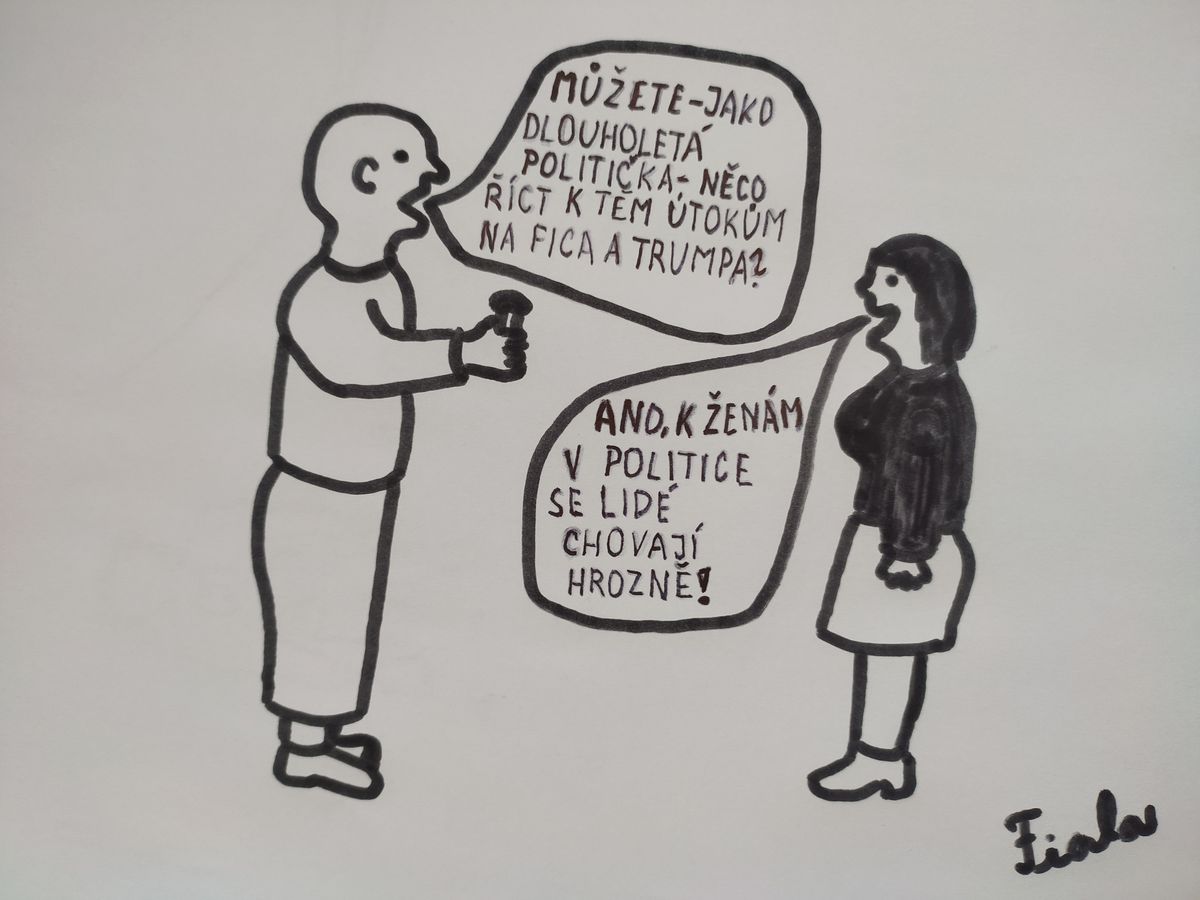 MŮŽETE-JAKO
DLOUHOLETÁ
POLITIČKA-NĚCO
ŘÍCT K TĚM ÚTOKŮM
NA FICA A TRUMPA?
ANO, K ŽENÁM
V POLITICE
SE LIDÉ
CHOVAJÍ
HROZNĚ!
Fiala